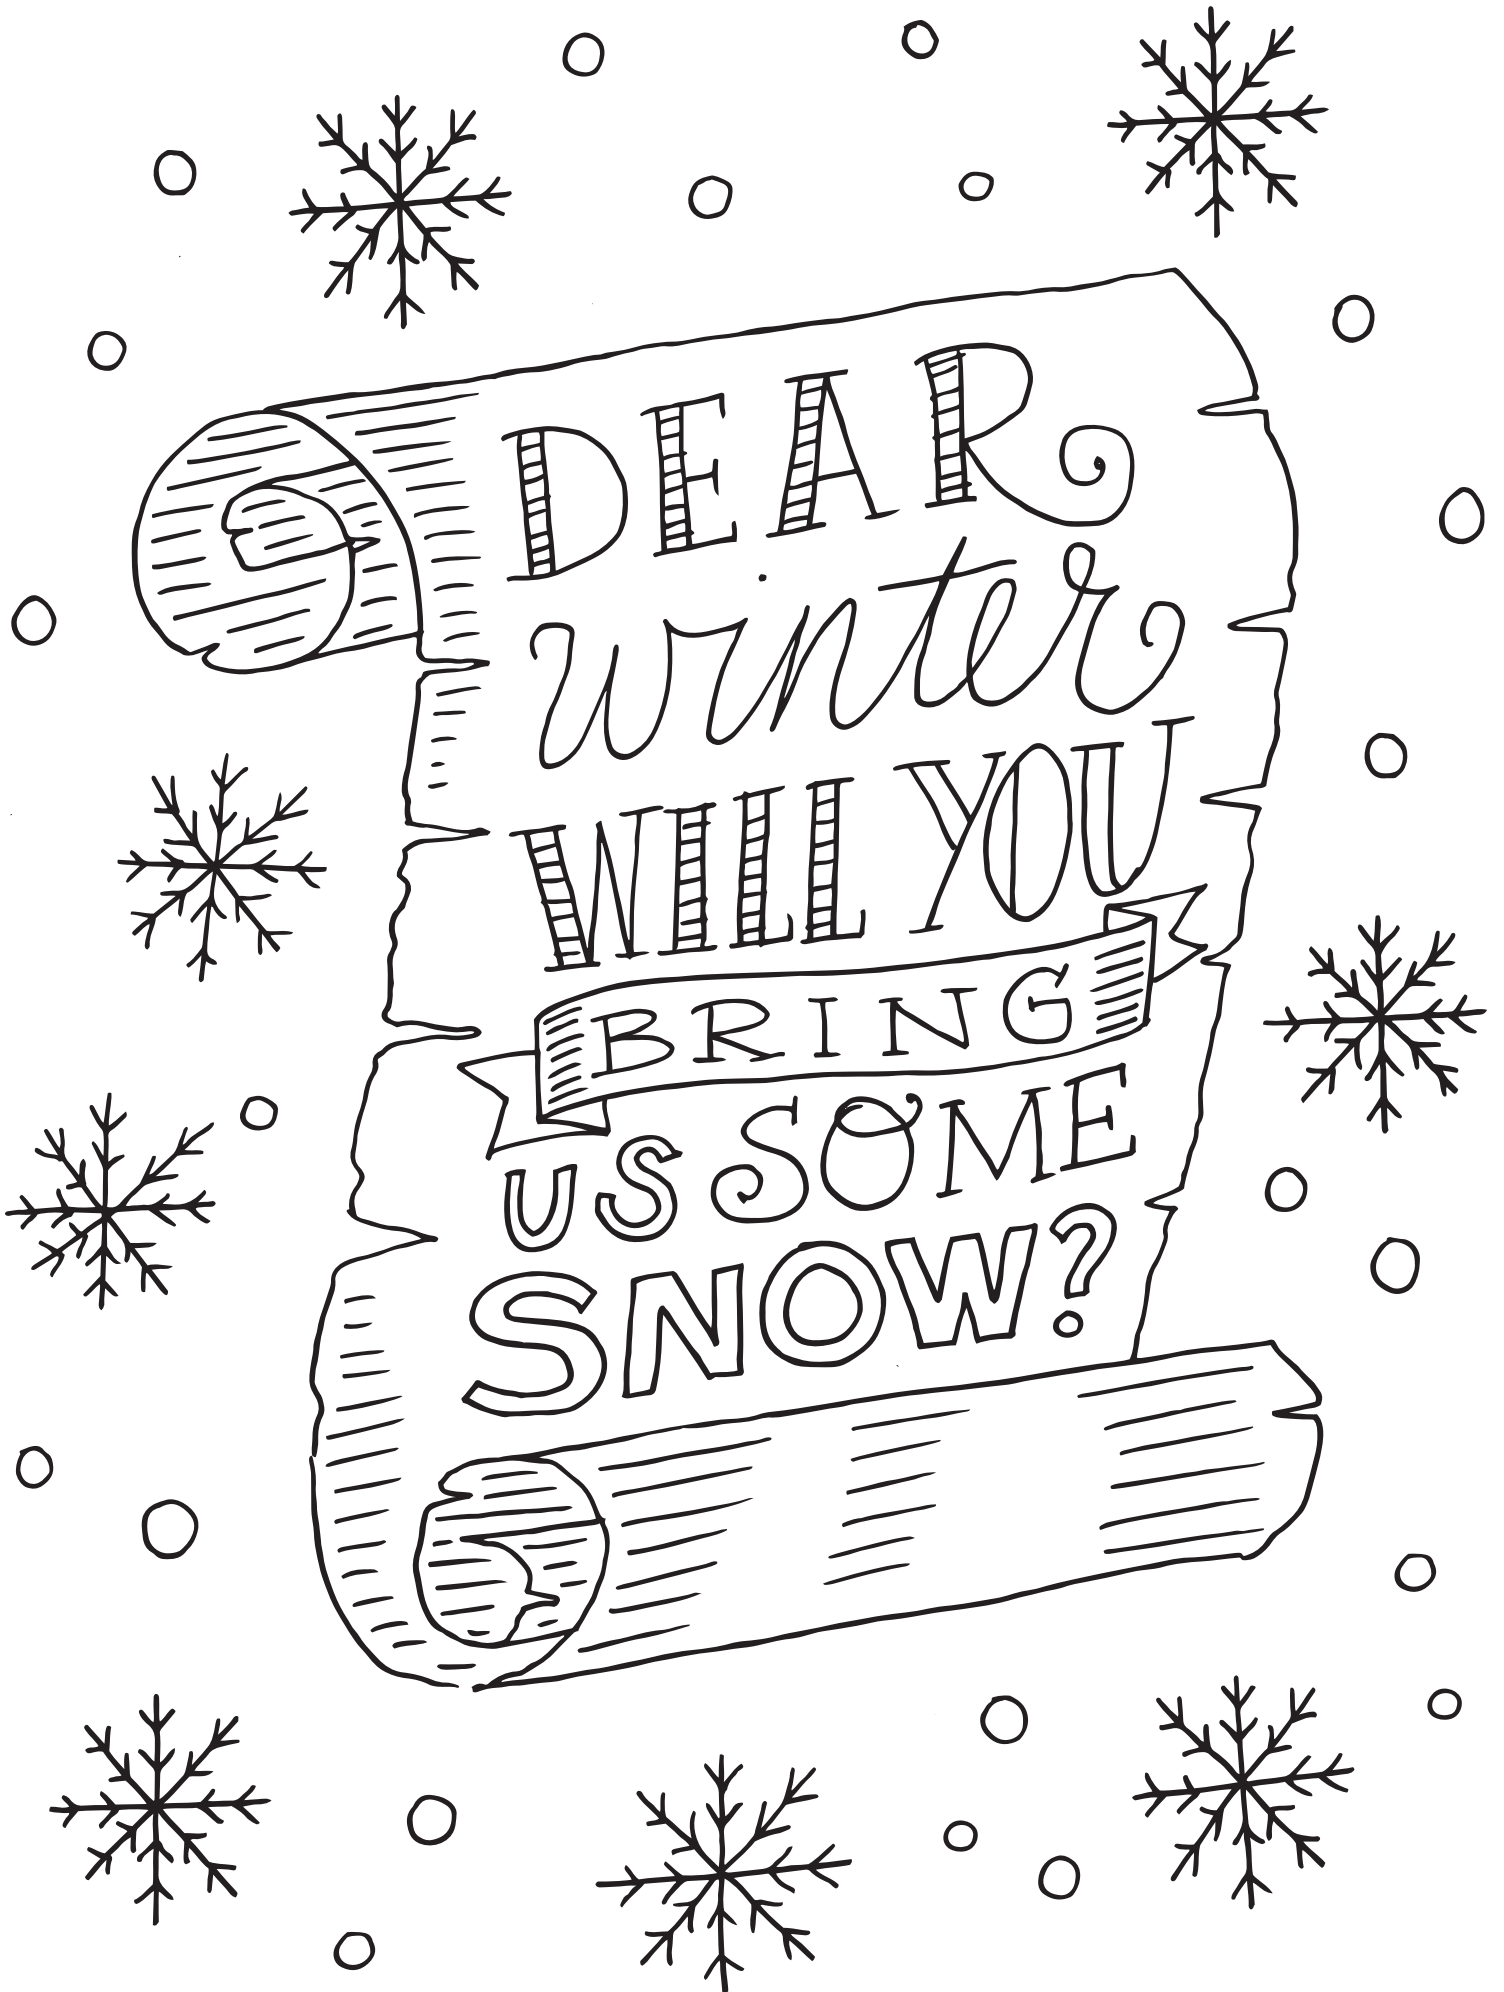 DEAR
winter
WILL YOU
BRING
US SOME
SNOW?